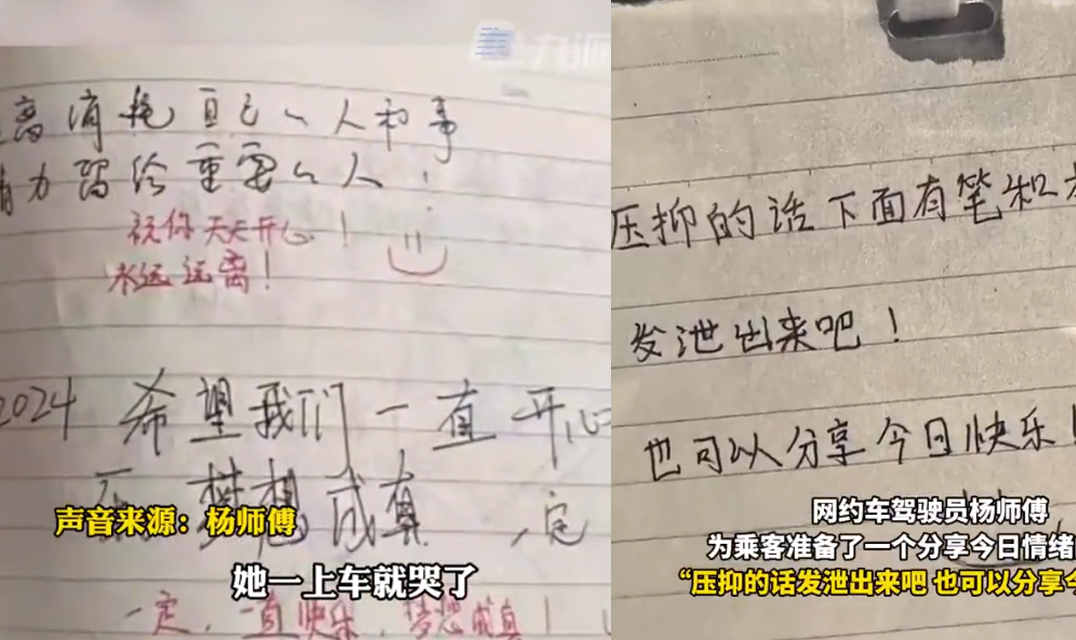 离消耗自己的人和事
力留给重要的人！
祝你天天开心！
永远远离！
2024 希望我们一直开心
梦想成真，一定
声音来源：杨师傅
她一上车就哭了
一定，一直快乐，梦想成真！
压抑的话下面有笔和
发泄出来吧！
也可以分享今日快乐！
网约车驾驶员杨师傅
为乘客准备了一个分享今日情绪
“压抑的话发泄出来吧 也可以分享今